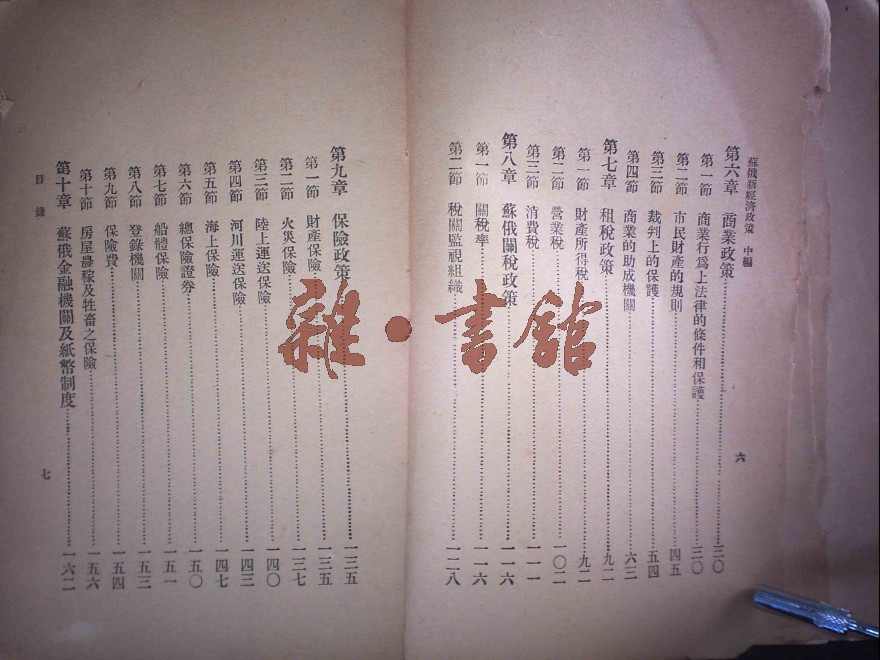 蘇俄新經濟政策 中編
第六章 商業政策 三〇
第一節 商業行爲上法律的條件和保護 三〇
第二節 市民財產的規則 四五
第三節 裁判上的保護 五四
第四節 商業的助成機關 六三
第七章 租稅政策 九二
第一節 財產所得稅 九二
第二節 營業稅 一〇二
第三節 消費稅 一一一
第八章 蘇俄關稅政策 一一六
第一節 關稅率 一一六
第二節 稅關監視組織 一二八
六
第九章 保險政策 一三五
第一節 財產保險 一三五
第二節 火災保險 一三七
第三節 陸上運送保險 一四〇
第四節 河川運送保險 一四三
第五節 海上保險 一四七
第六節 總保險證券 一五〇
第七節 船體保險 一五一
第八節 登錄機關 一五三
第九節 保險費 一五四
第十節 房屋農稼及牲畜之保險 一五六
第十章 蘇俄金融機關及紙幣制度 一六二
目錄
七
雜·書館